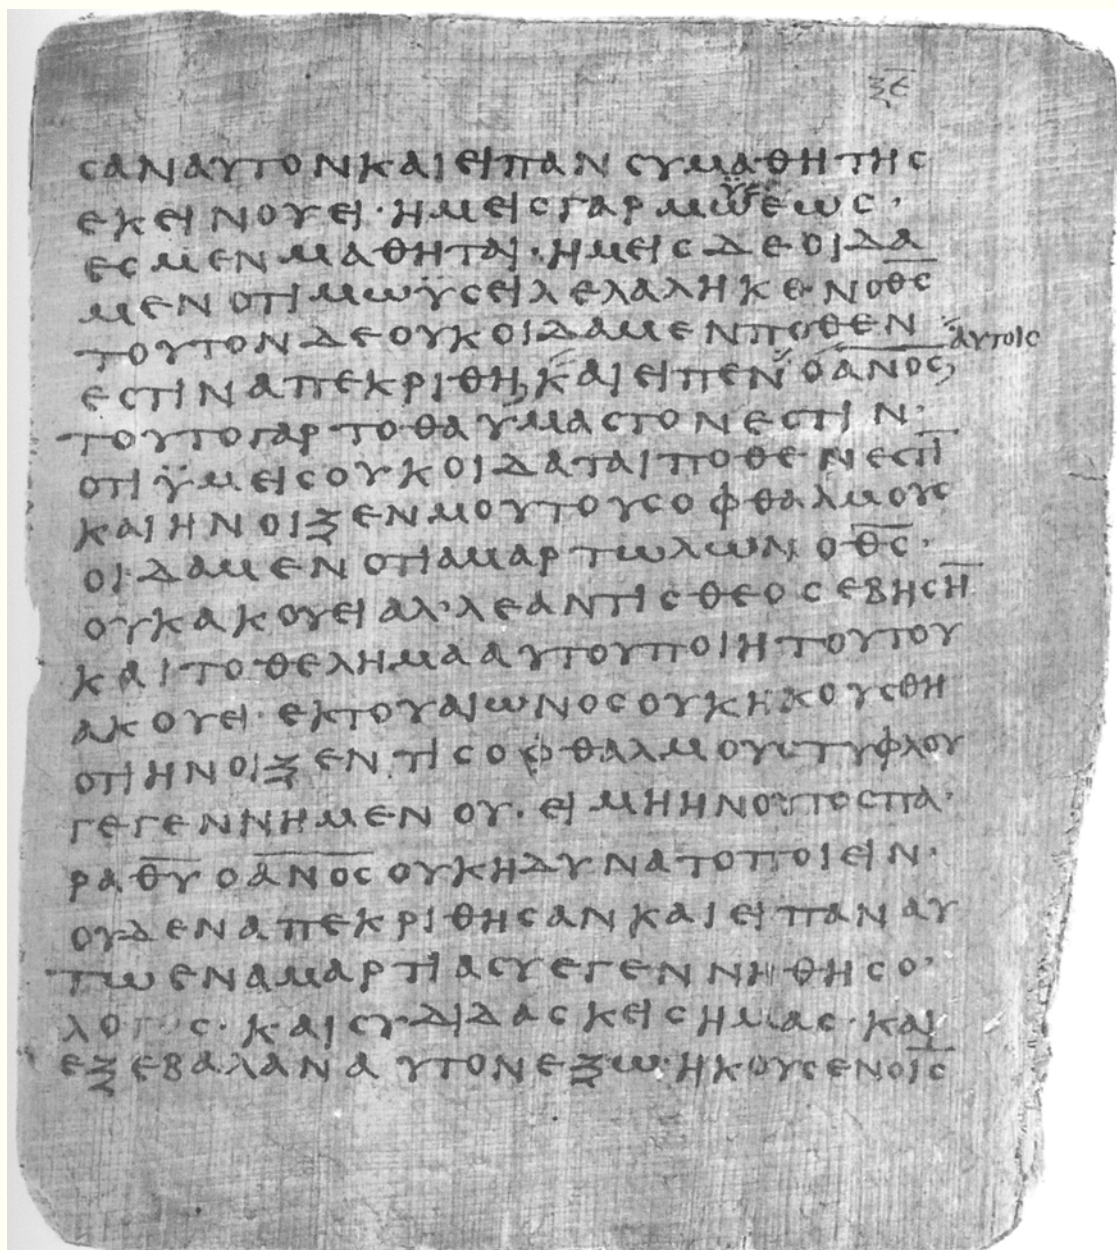 ξ̅ε̅
ϲαναυτονκαιειπανϲυμαθητηϲ
εκεινουει·ημειϲγαρμωϋϲεωϲ·
εϲμενμαθηται·ημειϲδεοιδα
μενοτιμωϋϲειλελαληκενοθ̅ϲ̅
τουτονδεουκοιδαμενποθεν
εϲτιναπεκριθηκαιειπεναυτοιϲοα̅ν̅ο̅ϲ̅
τουτογαρτοθαυμαϲτονεϲτιν·
οτιϋμειϲουκοιδαταιποθενεϲτι̅
καιηνοιξενμουτουϲοφθαλμουϲ
οιδαμενοτιαμαρτωλωνοθ̅ϲ̅·
ουκακουειαλ·λεαντιϲθεοϲεβηϲη̅
καιτοθελημααυτουποιητουτου
ακουει·εκτουαιωνοϲουκηκουϲθη
οτιηνοιξεντιϲοφθαλμουϲτυφλου
γεγεννημενου·ειμηηνουτοϲπα·
ραθ̅υ̅οα̅ν̅ο̅ϲ̅ουκηδυνατοποιειν·
ουδεναπεκριθηϲανκαιειπαναυ
τωεναμαρτιαϲυεγεννηθηϲο·
λογοϲ·καιϲυδιδαϲκειϲημαϲ·και
εξεβαλαναυτονεξω·ηκουϲενοι̅ϲ̅